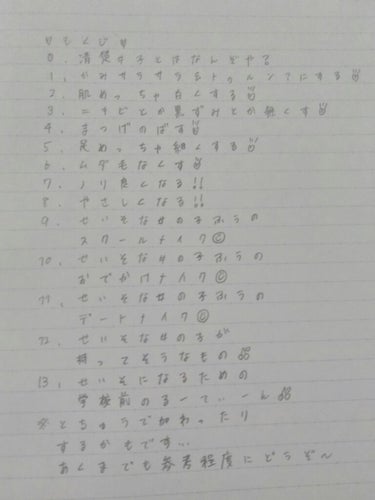 ♡もくじ♡
0. 清楚女子とはなんぞや?
1. かみサラサラ&トゥルントゥルンにする
2. 肌めっちゃ白くする
3. ニキビとか黒ずみとか無くす
4. まつげのばす
5. 足めっちゃ細くする
6. ムダ毛なくす
7. ノリ良くなる!!
8. やさしくなる!!
9. せいそな女の子ふうの
スクールメイク©
10. せいそな女の子ふうの
おでかけメイク©
11. せいそな女の子ふうの
デートメイク©
12. せいそな女の子が
持ってそうなもの
13. せいそになるための
学校前のるーてぃーん
※とちゅうでかわったり
するかもです…
あくまでも参考程度にどうぞ〜